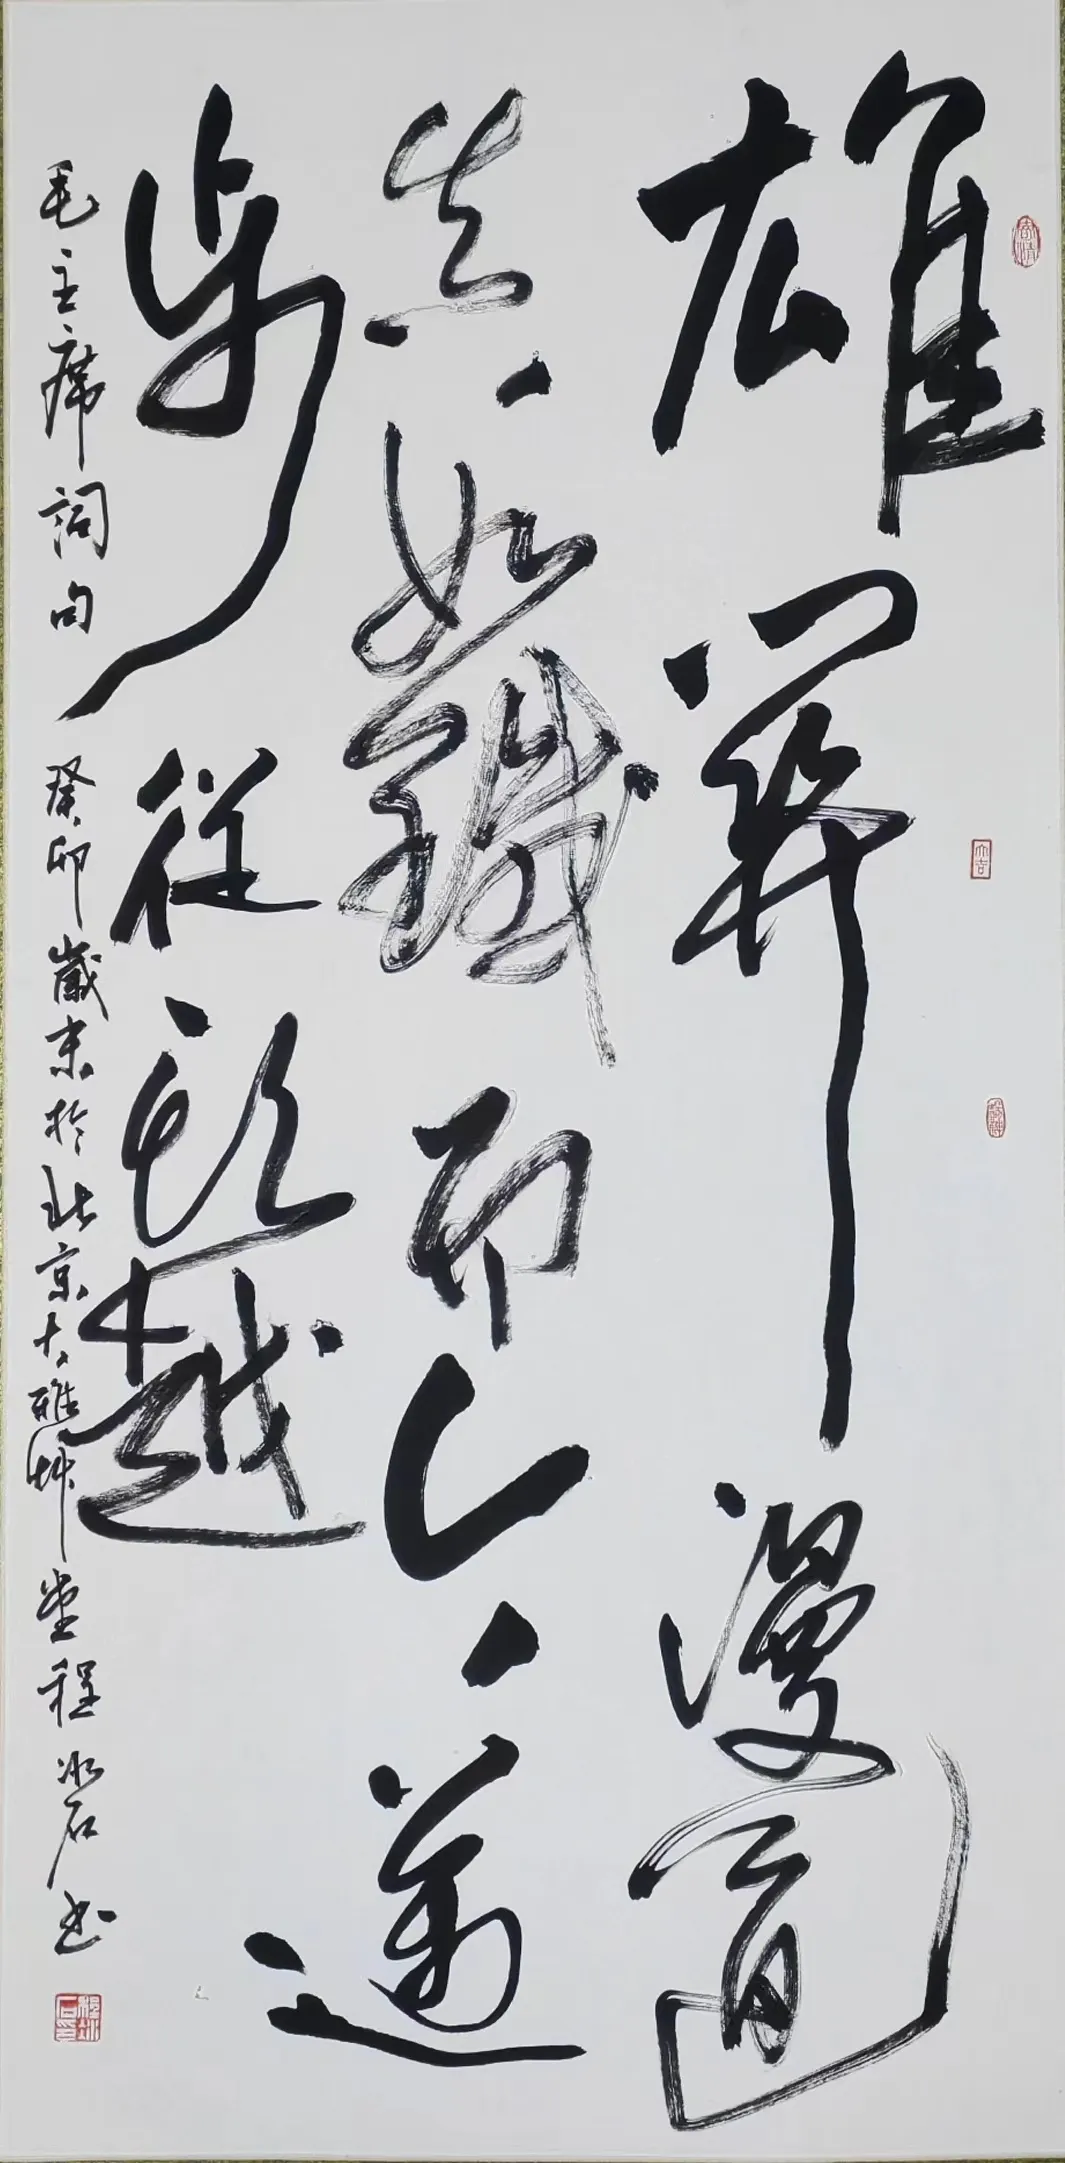 雄關漫道
真如鐵而今邁
步從頭越
毛主席詞句 癸卯歲末於北京大雅艸堂程冰石书
大吉